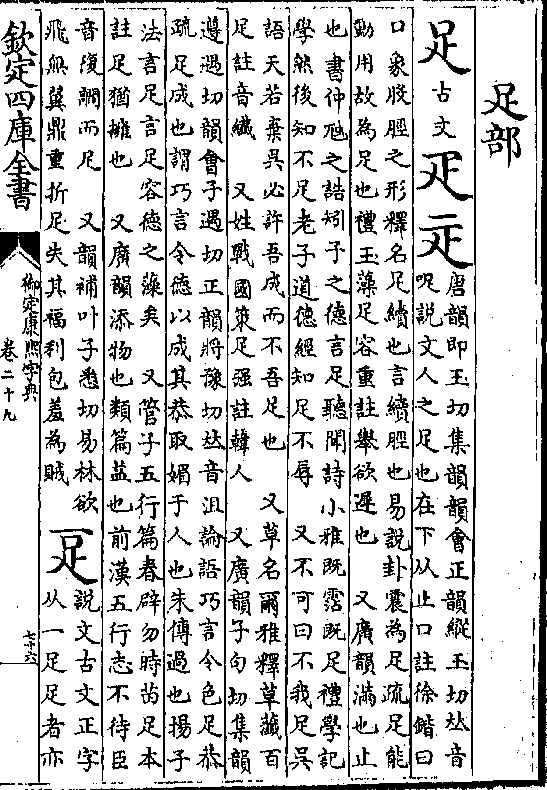 足部
足 古文 𤴓 𤴕 唐韻即玉切集韻韻會正韻縱玉切𠀤音
哫說文人之足也在下从止口註徐鍇曰
口象股脛之形釋名足續也言續脛也易說卦震為足疏足能
動用故為足也禮玉藻足容重註舉欲遲也 又廣韻滿也止
也書仲虺之誥矧予之德言足聽聞詩小雅既霑既足禮學記
學然後知不足老子道德經知足不辱 又不可曰不我足吳
語天若棄吳必許吾成而不吾足也 又草名爾雅釋草虃百
足註音纖 又姓戰國策足强註韓人 又廣韻子句切集韻
遵遇切韻會子遇切正韻將豫切𠀤音沮論語巧言令色足恭
疏足成也謂巧言令德以成其恭取媚于人也朱傳過也揚子
法言足言足容德之藻矣 又管子五行篇春辟勿時苗足本
註足猶擁也 又廣韻添物也類篇益也前漢五行志不待臣
音復讇而足 又韻補叶子悉切易林欲
飛無翼鼎重折足失其福利包羞為賊
𤴓 說文古文正字
从一足足者亦
欽定四庫全書
御定康熙字典
卷二十九
七十六